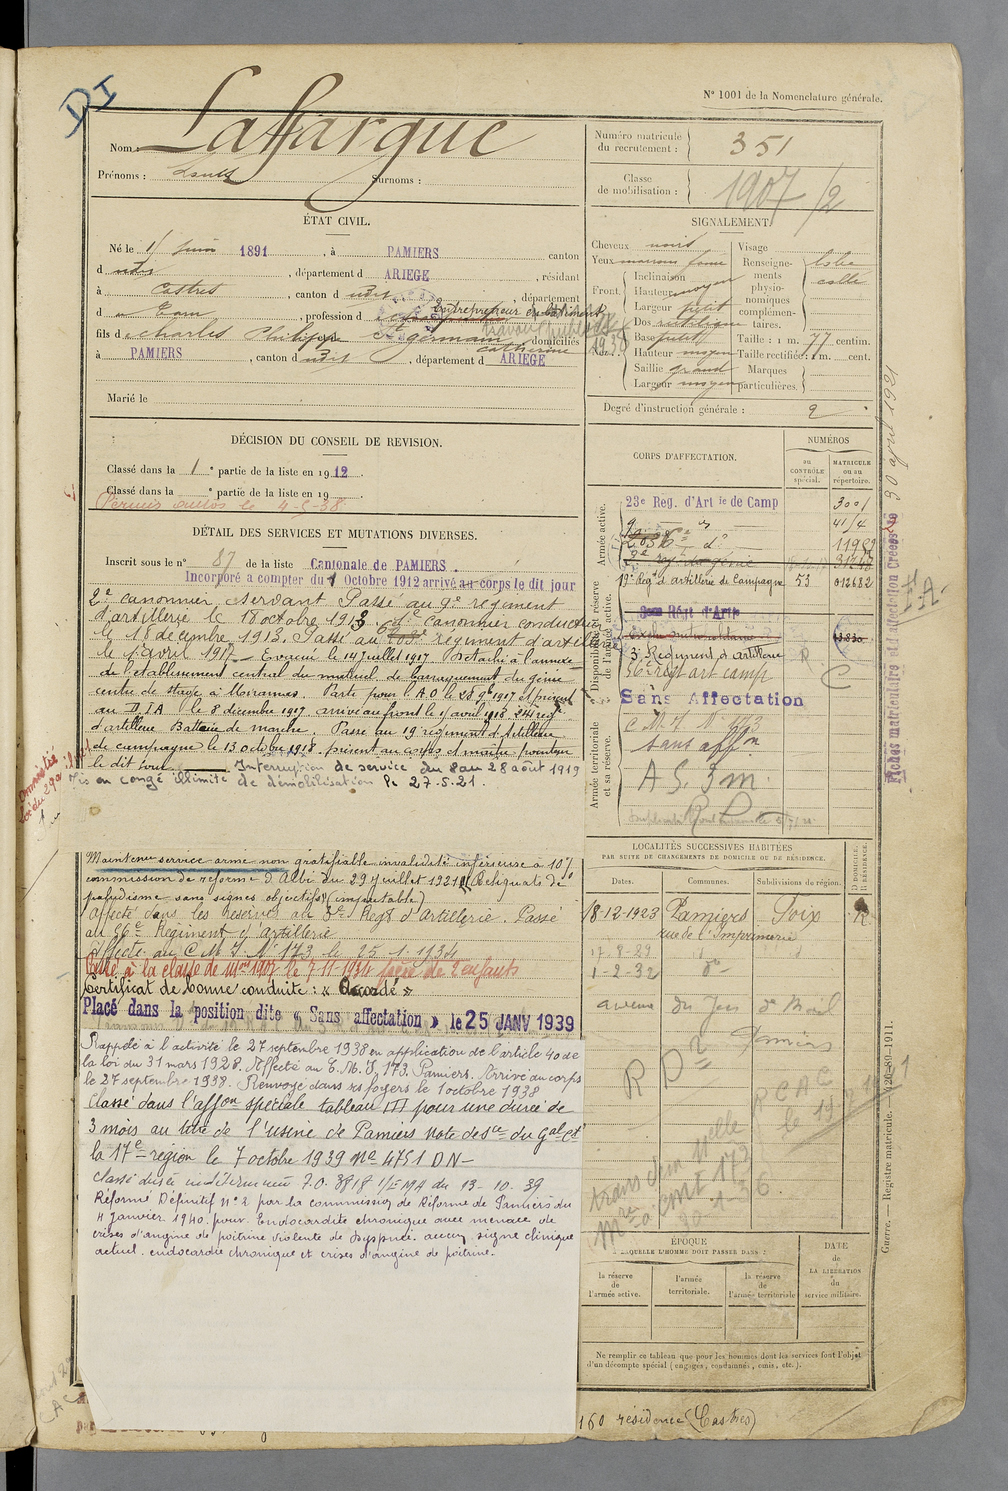 DI
N° 1001 de la Nomenclature générale.
Nom : Laffargue
Prénoms : Louis Surnoms :
Numéro matricule du recrutement : 351
Classe de mobilisation : 1907 /2
ÉTAT CIVIL.
Né le 1 juin 1891, à PAMIERS, canton
d udit, département d ARIEGE, résidant
à Castres, canton d udit, département
d u Tarn, profession d Entrepreneur de bâtiment
travaux publics
fils d e Charles Philippe et d germain Catherine domiciliés
à PAMIERS, canton d udit, département d ARIEGE
Marié le
SIGNALEMENT.
Cheveux noirs
Yeux marrons
Front. Inclinaison
Hauteur moyen
Largeur petit
Dos
Base petit
Hauteur moyen
Saillie grand
Largeur moyen
Visage
Renseignements physionomiques complémentaires.
Taille : 1 m. 77 centim.
Taille rectifiée : 1 m. cent.
Marques particulières.
Degré d'instruction générale : 2
DÉCISION DU CONSEIL DE REVISION.
Classé dans la 1e partie de la liste en 1912.
Classé dans la e partie de la liste en 19
Permis autos le 4-5-38
DÉTAIL DES SERVICES ET MUTATIONS DIVERSES.
Inscrit sous le n° 87 de la liste Cantonale de PAMIERS.
Incorporé a compter du 1 Octobre 1912 arrivé au corps le dit jour
2e canonnier servant Passé au 9e regiment
d'artillerie le 18 octobre 1912. 2e canonnier conducteur
le 18 decembre 1913. Passé au régiment d'artillerie
le 1 avril 1917. Evacué le 14 juillet 1917 Détaché à l'annexe
de l'établissement central du matériel de baraquement du génie
centre de stage à Moirannes. Parti pour l'A.O le 28 9bre 1917 et présent
au D I A le 8 décembre 1917 arrivé au front le 1 avril 1918 241 regt
d'artillerie Batterie de marche. Passé au 19e régiment d'artillerie
de campagne le 13 octobre 1918. présent au corps et maître pointeur
le dit jour. Interruption de service du 8 au 28 août 1919
Mis en congé illimité de démobilisation le 27-5-21.
Maintenu service armé non gratifiable invalidité inférieure à 10%
commission de réforme d'Albi du 29 Juillet 1921 Reliquats de
paludisme sans signes objectifs (imputable)
Affecté dans les réserves au 3e Regt d'Artillerie. Passé
au 56e Régiment d'artillerie
Affecté au C M I N° 173 le 25-1-1934
Passé à la classe de Mon 1907 le 7-11-1934 père de 2 enfants
Certificat de bonne conduite : « Accordé »
Placé dans la position dite « Sans affectation » le 25 JANV 1939
Rappelé à l'activité le 27 septembre 1938 en application de l'article 40 de
la loi du 31 mars 1928. Affecté au C.M.I. 173. Pamiers. Arrivé au corps
le 27 septembre 1938. Renvoyé dans ses foyers le 1 octobre 1938
Classé dans l'affon spéciale tableau III pour une durée de
3 mois au titre de l'usine de Pamiers Note de Sce du Gal Ct
la 17e région le 7 octobre 1939 No 4751 DN-
Classé durée indéterminée 7.0. 8818 1/EMA du 13-10-39
Réformé Définitif N° 2 par la commission de Réforme de Pamiers du
4 Janvier 1940. pour: Endocardite chronique avec menace de
crises d'angine de poitrine violente de dyspnée. aucun signe clinique
actuel. endocardie chronique et crises d'angine de poitrine.
CORPS D'AFFECTATION.
NUMÉROS
au CONTRÔLE spécial.
MATRICULE ou au répertoire.
Armée active.
23e Reg. d'Art ie de Camp 3001
9e d° 41/4
19e Regt d'artillerie de Campagne 53 012682
Disponibilité et réserve de l'armée active.
3eme Régt d'Artie
3e Régiment d'artillerie R.
56e régt art camp C
Sans Affectation
Armée territoriale et sa réserve.
C M I N° 173
Sans affon
A S. 3 m.
LOCALITÉS SUCCESSIVES HABITÉES
PAR SUITE DE CHANGEMENTS DE DOMICILE OU DE RÉSIDENCE.
Dates. Communes. Subdivisions de région. D DOMICILE. R RÉSIDENCE.
18-12-1923 Pamiers Foix R
rue de l'Imprimerie
17-8-29
1-2-32 d°
avenue du Jeu du Mail
Pamiers
R D
ÉPOQUE
À LAQUELLE L'HOMME DOIT PASSER DANS :
la réserve de l'armée active.
l'armée territoriale.
la réserve de l'armée territoriale
DATE de LA LIBÉRATION du service militaire.
Ne remplir ce tableau que pour les hommes dont les services font l'objet
d'un décompte spécial (engagés, condamnés, omis, etc.).
160 résidence (Castres)
Fiches matriculaires et d'affectation Créées le 30 avril 1921
Guerre. — Registre matricule. — 420-89-1911.